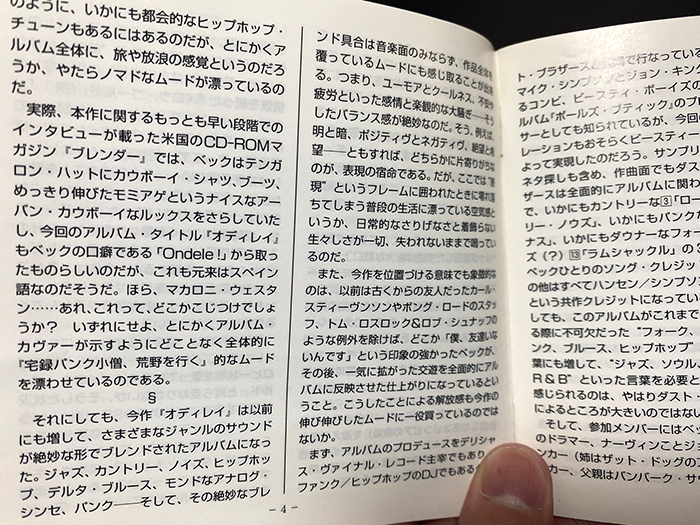 のように、いかにも都会的なヒップホップ・
チューンもあるにはあるのだが、とにかくア
ルバム全体に、旅や放浪の感覚というのだろ
うか、やたらノマドなムードが漂っているの
だ。
実際、本作に関するもっとも早い段階での
インタビューが載った米国のCD-ROMマ
ガジン『ブレンダー』では、ベックはテンガ
ロン・ハットにカウボーイ・シャツ、ブーツ、
めっきり伸びたモミアゲというナイスなアー
バン・カウボーイなルックスをさらしていた
し、今回のアルバム・タイトル『オディレイ』
もベックの口癖である「Ondele!」から取っ
たものらしいのだが、これも元来はスペイン
語なのだそうだ。ほら、マカロニ・ウェスタ
ン……あれ、これって、どこかこじつけでしょ
うか? いずれにせよ、とにかくアルバム・
カヴァーが示すようにどことなく全体的に
『宅録パンク小僧、荒野を行く』的なムード
を漂わせているのである。
§
それにしても、今作『オディレイ』は以前
にも増して、さまざまなジャンルのサウンド
が絶妙な形でブレンドされたアルバムになっ
た。ジャズ、カントリー、ノイズ、ヒップホッ
プ、デルタ・ブルース、モンドなアナログ・
シンセ、パンク──そして、その絶妙なブレ
ンド具合は音楽面のみならず、作品全体を
覆っているムードにも感じ取ることが出来
る。つまり、ユーモアとクールネス、不安や
疲労といった感情と楽観的な大騒ぎ──そう
したバランス感が絶妙なのだ。そう、例えば、
明と暗、ポジディヴとネガティヴ、絶望と希
望──ともすれば、どちらかに片寄りがちな
のが、表現の宿命である。だが、ここでは“表
現”というフレームに囲われたときに零れ落
ちてしまう普段の生活に漂っている空気感と
いうか、日常的なさりげなさと着飾らない
生々しさが一切、失われないままで鳴ってい
るのだ。
また、今作を位置づける意味でも象徴的な
のは、以前は古くからの友人だったカール・
スティーヴンソンやボング・ロードのスタッ
フ、トム・ロスロック&ロブ・シュナッフの
ような例外を除けば、どこか「僕、友達いな
いんです」という印象の強かったベックが、
その後、一気に拡がった交遊を全面的にアル
バムに反映させた仕上がりになっているとい
うこと。こうしたことによる解放感も今作の
伸び伸びしたムードに一役買っているのでは
ないか。
まず、アルバムのプロデュースをデリシャ
ス・ヴァイナル・レコード主宰でもあり、
ファンク/ヒップホップのDJでもある
- 4 -
ト・ブラザースと共同で行なっている
マイク・シンプソンとジョン・キン
るコンビ、ビースティ・ボーイズの
ルバム『ポールズ・ブティック』のプ
サーとしても知られているが、今回
レーションもおそらくビースティー
よって実現したのだろう。サンプリ
ネタ探しも含め、作曲面でもダス
ザースは全面的にアルバムに関
で、いかにもカントリーな③「ロー
リー・ノウズ」、いかにもパンク
ナス」、いかにもダウナーなフォー
ズ(?)⑬「ラムシャックル」の3
ベックひとりのソング・クレジッ
の他はすべてハンセン/シンプソン
という共作クレジットになってい
ても、このアルバムがこれまで
る際に不可欠だった“フォーク、
ンク、ブルース、ヒップホップ”
葉にも増して、“ジャズ、ソウル、
R&B”といった言葉を必要と
感じられるのは、やはりダスト・
によるところが大きいのではない
そして、参加メンバーにはベッ
のドラマー、ナーヴィンことジョ
ンカー(姉はザット・ドッグの
カー、父親はバンパーク・サ